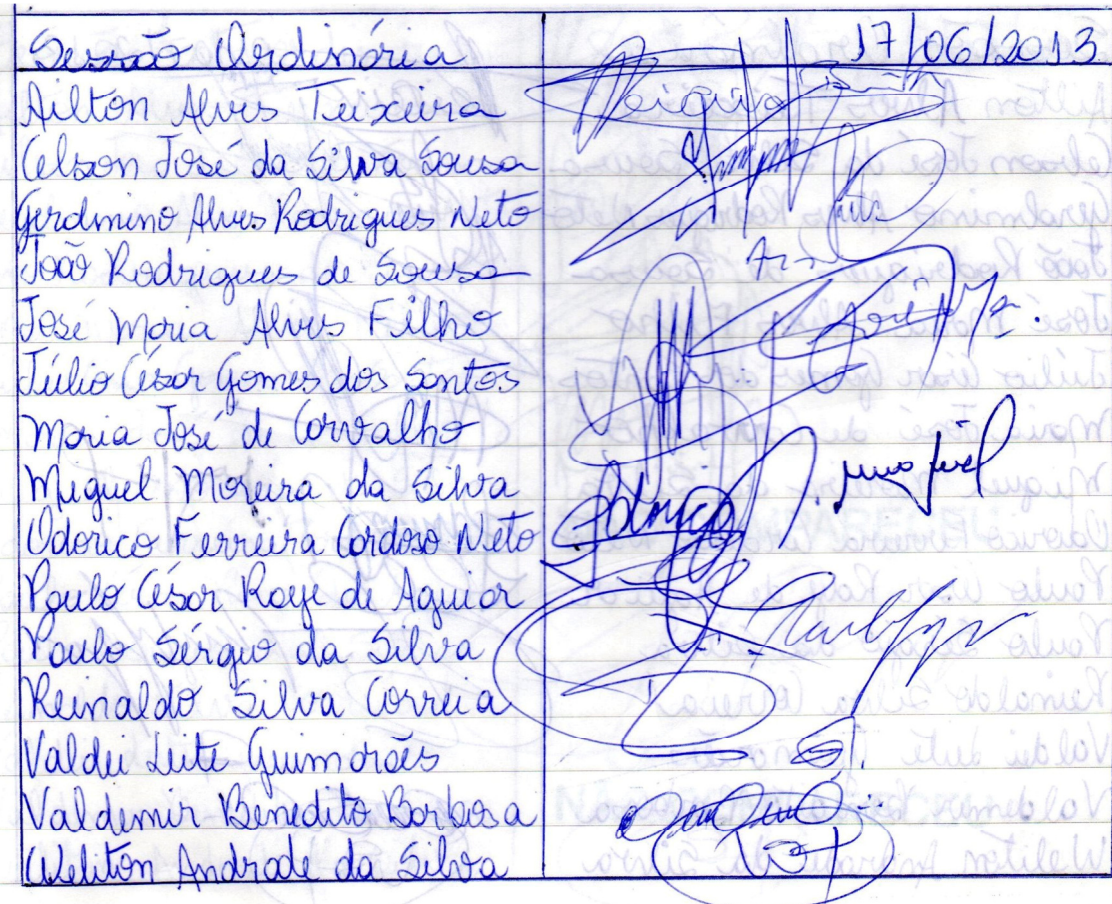 Sessão Ordinária 17/06/2013
Ailton Alves Teixeira
Celson José da Silva Sousa
Geralmino Alves Rodrigues Neto
João Rodrigues de Sousa
José Maria Alves Filho
Júlio César Gomes dos Santos
Maria José de Carvalho
Miguel Moreira da Silva
Odorico Ferreira Cardoso Neto
Paulo César Raye de Aguiar
Paulo Sérgio da Silva
Reinaldo Silva Correia
Valdei Leite Guimarães
Valdemir Benedito Barbosa
Weliton Andrade da Silva